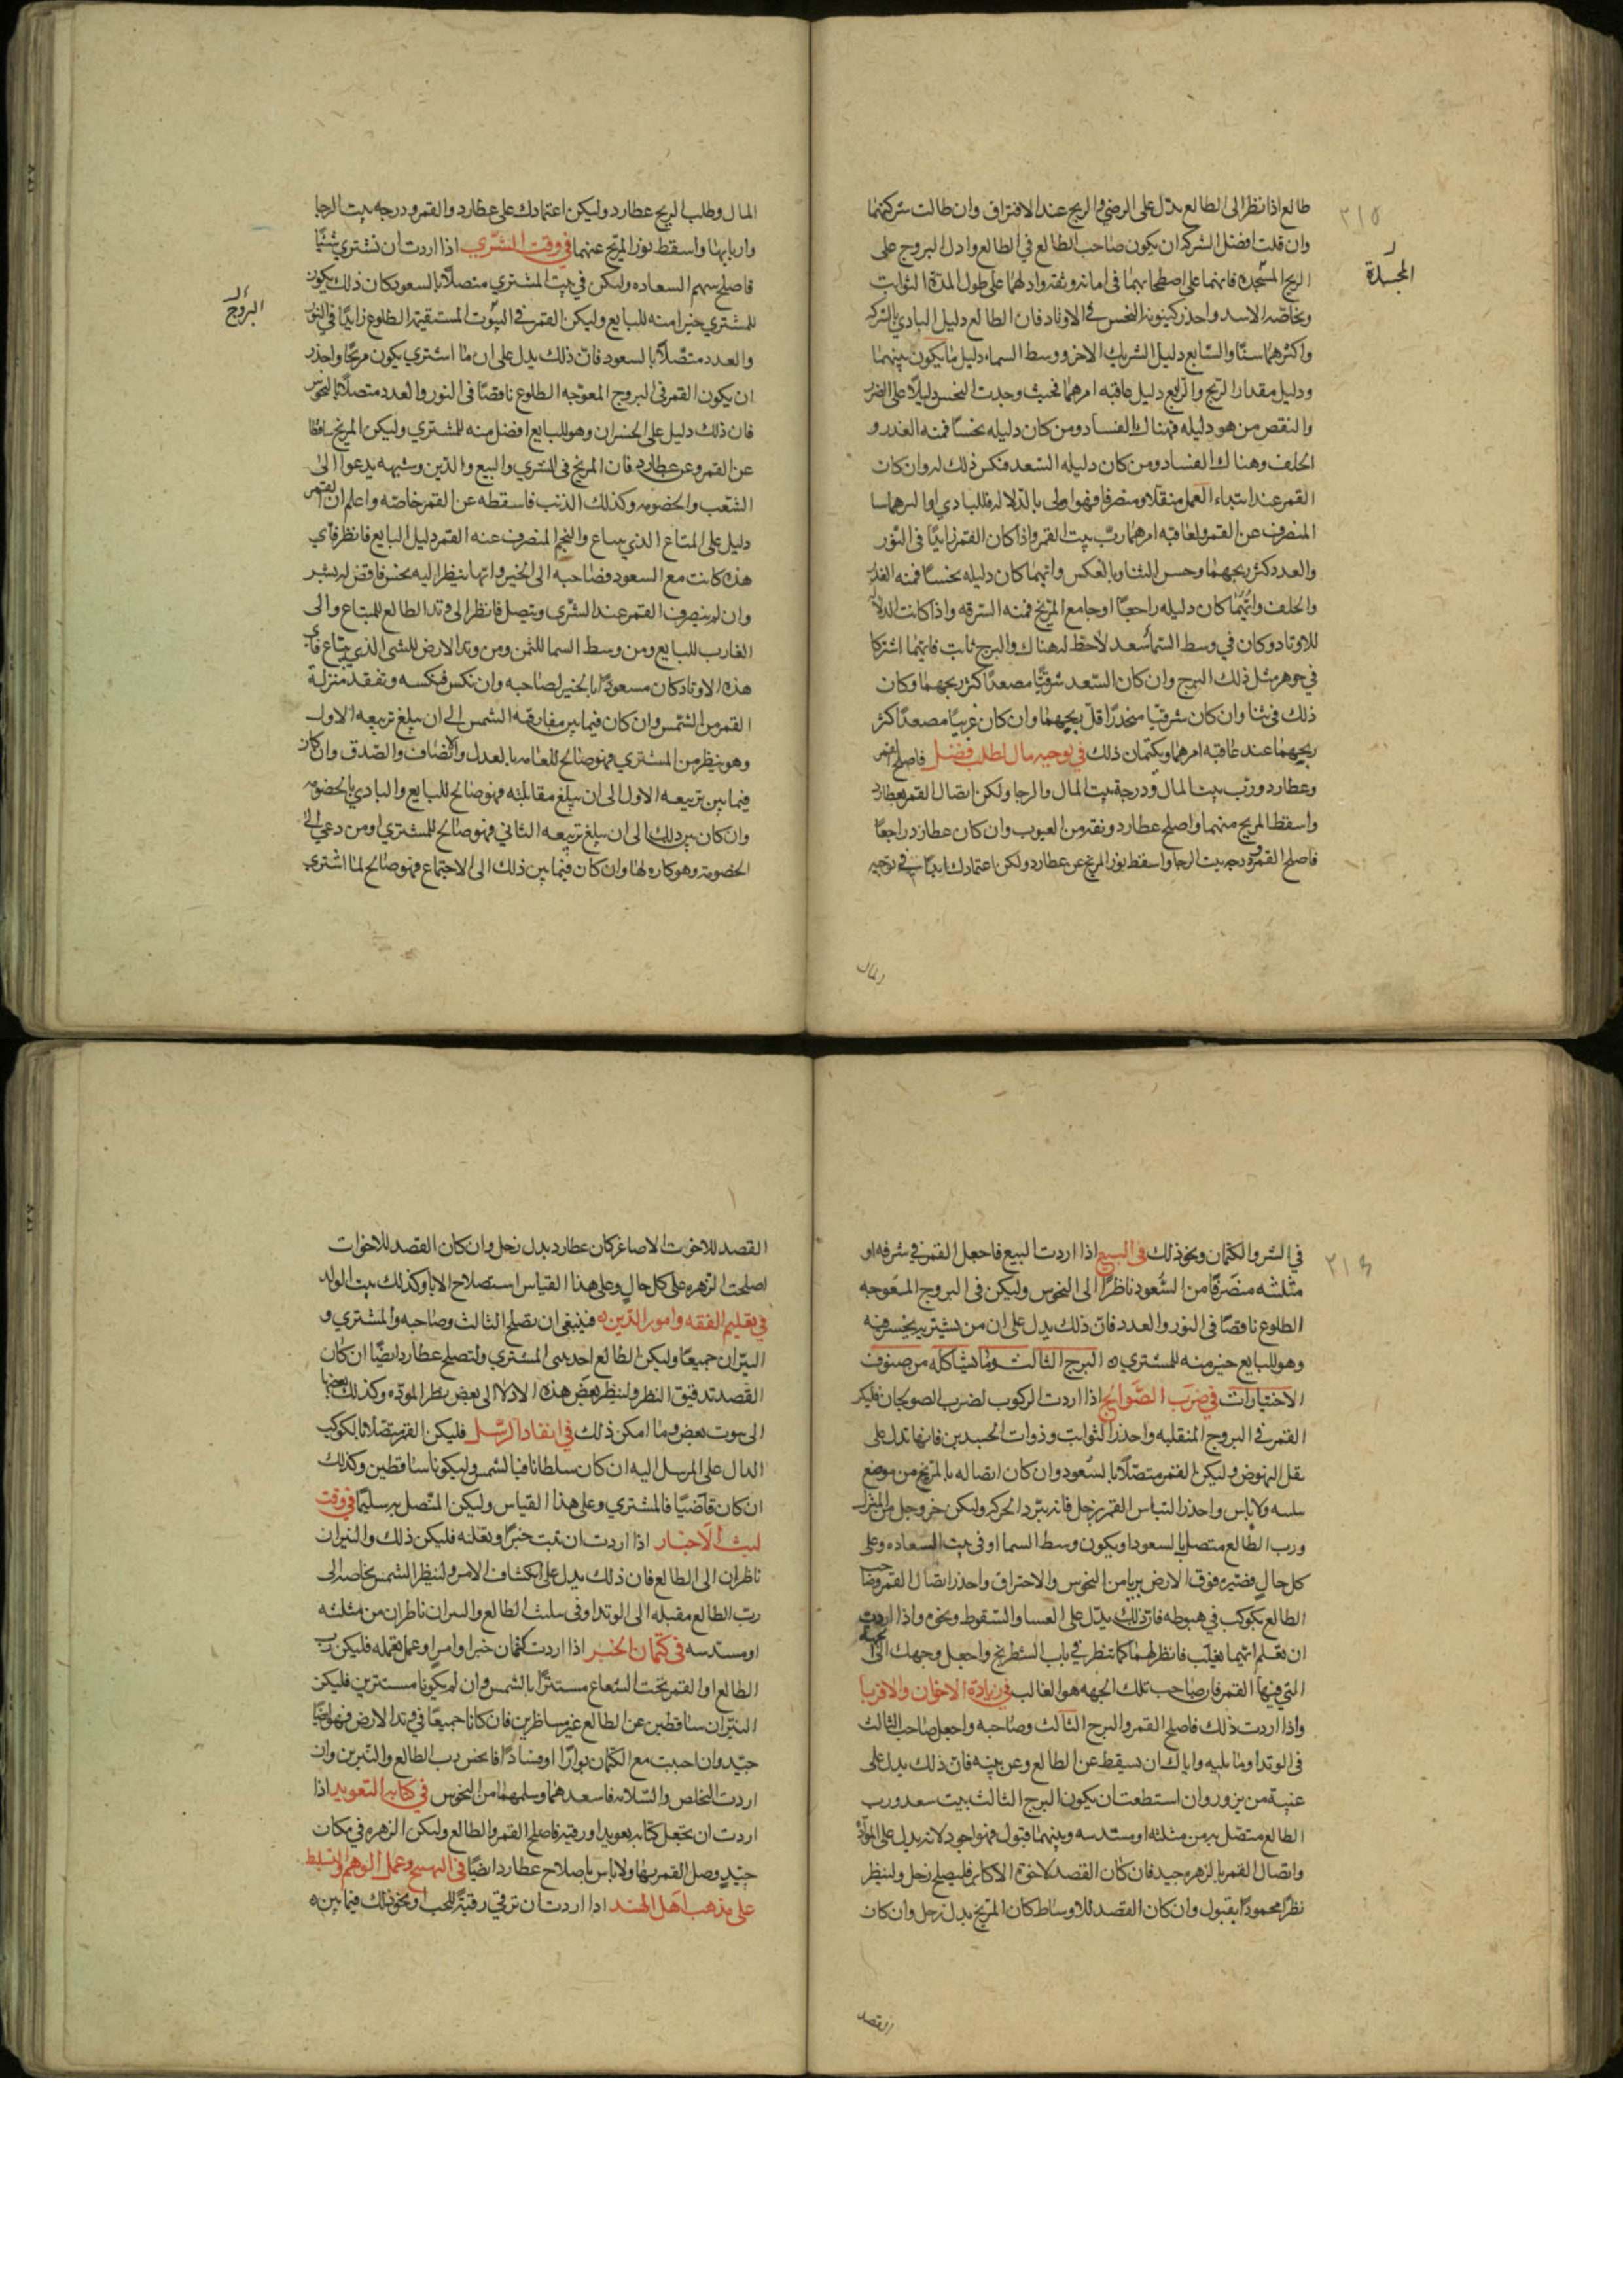 ٢١٥
المجسدة
طالع اذا نظر الى الطالع يدل على الرضى والربح عند الافتراق وان طالت شركتهما
وان قلت افضل الشركه ان يكون صاحب الطالع في الطالع وادل البروج على
الربح المتجسده فانهما على اصطحابهما في امانه وثقه وادلهما على طول المدة الثوابت
وبخاصه الاسد واحذر كينونة النحس في الاوتاد فان الطالع دليل البادي بالشركه
واكثرهما سنا والسابع دليل الشريك الاخر ووسط السماء دليل ما يكون بينهما
ودليل مقدار الربح والرابع دليل عاقبه امرهما فحيث وجدت النحس دليلا على الضرر
والنقص من هو دليله فهناك الفساد ومن كان دليله نحسا فمنه الغدر و
الخلف وهناك الفساد ومن كان دليله السعد فعكس ذلك له وان كان
القمر عند ابتداء العمل منقلا ومنصرفا فهو اولى بالدلاله فللبادي او اكبرهما سنا
المنصرف عن القمر ولعاقبه امرهما رب بيت القمر واذا كان القمر زايدا في النور
والعدد كثر ربحهما وحسن الثنا وبالعكس وايهما كان دليله نحسا فمنه الغدر
والخلف وايهما كان دليله راجعا او جامع المريخ فمنه السرقه واذا كانت الدلاله
للاوتاد وكان في وسط السما سعد لاحظ له هناك والبرج ثابت فانهما اشتركا
في جوهر مثل ذلك البرج وان كان السعد شرقيا مصعدا كثر ربحهما وكان
ذلك في ثنا وان كان شرقيا منحدرا قل ربحهما وان كان غربيا مصعدا كثر
ربحهما عند عاقبه امرهما ويكتمان ذلك في توجيه مال لطلب فضل فاصلح القمر
وعطارد ورب بيت المال ودرجة بيت المال والرجا ولكن اتصال القمر بعطارد
واسقط المريخ منهما واصلح عطارد ونقه من العيوب وان كان عطارد راجعا
فاصلح القمر ودرجه بيت الرجا واسقط نور المريخ عن عطارد ولكن اعتمادك ابدا في توجيه
المال
المال وطلب الربح عطارد وليكن اعتمادك على عطارد والقمر ودرجه بيت الرجا
واربابها واسقط نور المريخ عنهما في وقت الشرى اذا اردت ان تشتري شيئا
فاصلح سهم السعاده وليكن في بيت المشتري متصلا بالسعود كان ذلك يكون
للمشتري خير منه للبايع وليكن القمر في البيوت المستقيمة الطلوع زايدا في النور
البروج
والعدد متصلا بالسعود فان ذلك يدل على ان ما اشترى يكون مربحا واحذر
ان يكون القمر في البروج المعوجه الطلوع ناقصا في النور والعدد متصلا بالنحوس
فان ذلك دليل على الخسران وهو للبايع افضل منه للمشتري وليكن المريخ ساقطا
عن القمر وعن عطارد فان المريخ في الشرى والبيع والدين وشبهه يدعوا الى
الشغب والخصومه وكذلك الذنب فاسقطه عن القمر خاصه واعلم ان القمر
دليل على المتاع الذي يباع والنجم المنصرف عنه القمر دليل البايع فانظر فاي
هذه كانت مع السعود فصاحبه الى الخير وايها ينظر اليه نحس فاقض له بشر
وان لم ينصرف القمر عند الشرى ويتصل فانظر الى وتد الطالع للمبتاع والى
الغارب للبايع ومن وسط السما للثمن ومن وتد الارض للشى الذي يبتاع فاي
هذه الاوتاد كان مسعودا بالخير لصاحبه وان نكس فنكسه وتفقد منزلة
القمر من الشمس وان كان فيما بين مفارقه الشمس الى ان يبلغ تربيعه الاول
وهو ينظر من المشتري فهو صالح للعامه بالعدل والانصاف والصدق وان كان
فيما بين تربيعه الاول الى ان يبلغ مقابلته فهو صالح للبايع والبادي بالخصومه
وان كان بين ذلك الى ان يبلغ تربيعه الثاني فهو صالح للمشتري او من دعي الى
الخصومه وهو كاره لها وان كان فيما بين ذلك الى الاجتماع فهو صالح لما اشترى
٢١٦
في الشر والكتمان ونحو ذلك في البيع اذا اردت البيع فاجعل القمر في شرفه او
مثلثه منصرفا من السعود ناظرا الى النحوس وليكن في البروج المعوجه
الطلوع ناقصا في النور والعدد فان ذلك يدل على ان من يشتريه يخسر فيه
وهو للبايع خير منه للمشتري ٥ البرج الثالث وما يشاكله من صنوف
الاختيارات في ضرب الصوالج اذا اردت الركوب لضرب الصولجان فليكن
القمر في البروج المنقلبه واحذر الثوابت وذوات الجسدين فانها تدل على
ثقل النهوض وليكن القمر متصلا بالسعود وان كان اتصاله بالمريخ من موضع
سلسه ولاباس واحذر التباس القمر بزحل فانه يبرد الحركه وليكن خروجك من المنزل
ورب الطالع متصل بالسعود او يكون وسط السما او في بيت السعاده وعلى
كل حال فصيره فوق الارض بريا من النحوس والاحتراق واحذر اتصال القمر وصاحب
الطالع بكوكب في هبوطه فان ذلك يدل على العسا والسقوط ونحوه واذا اردت
ان تعلم ايهما يغلب فانظر لهما كما تنظر في باب الشطرنج واجعل وجهك الى الجهة
التي فيها القمر فان صاحب تلك الجهه هو الغالب في زيادة الاخوان والاقربا
واذا اردت ذلك فاصلح القمر والبرج الثالث وصاحبه واجعل صاحب الثالث
في الوتد او ما يليه واياك ان يسقط عن الطالع وعن بيته فان ذلك يدل على
غيبة من يزور وان استطعت ان يكون البرج الثالث بيت سعد ورب
الطالع متصل به من مثلثه او مسدسه وبينهما قبول فهو اجود لانه يدل على المودة
واتصال القمر بالزهره جيد فان كان القصد لاخوة الاكابر فليصلح زحل ولينظر
نظرا محمودا بقبول وان كان القصد للاوساط كان المريخ بدل زحل وان كان
القصد
القصد للاخوة الاصاغر كان عطارد بدل زحل وان كان القصد للاخوات
اصلحت الزهره على كل حال وعلى هذا القياس استصلاح الابا وكذلك بيت الولد
في تعليم الفقه وامور الدين ٥ فينبغي ان يصلح الثالث وصاحبه والمشتري و
النيران جميعا وليكن الطالع احد بيتي المشتري ولتصلح عطارد ايضا ان كان
القصد تدقيق النظر ولينظر بعض هذه الادلا الى بعض نظر الموده وكذلك بعضها
الى بيوت بعض وما امكن ذلك في انفاد الرسل فليكن القمر متصلا بالكوكب
الدال على المرسل اليه ان كان سلطانا فبالشمس وليكونا ساقطين وكذلك
ان كان قاضيا فالمشتري وعلى هذا القياس وليكن المتصل به سليما في وقت
لبث الاخبار اذا اردت ان تبث خبرا وتعلنه فليكن ذلك والنيران
ناظران الى الطالع فان ذلك يدل على انكشاف الامر ولينظر الشمس بخاصه الى
رب الطالع مقبله الى الوتد او في سلث الطالع والنيران ناظران من مثلثه
او مسدسه في كتمان الخبر اذا اردت كتمان خبر او امر او عمل تعمله فليكن رب
الطالع او القمر تحت الشعاع مستترا بالشمس وان لم يكونا مستترين فليكن
النيران ساقطين عن الطالع غير ناظرين فان كانا جميعا في وتد الارض فهو ايضا
جيد وان احببت مع الكتمان بوارا او فسادا فانحس رب الطالع والنيرين وان
اردت التخلص والسلامه فاسعدهما وسلمهما من النحوس في كتابه التعويد اذا
اردت ان تجعل كتابه تعويد او رقيه فاصلح القمر والطالع وليكن الزهره في مكان
جيد وصل القمر بها ولاباس باصلاح عطارد ايضا في التهييج وعمل الوهم والتسليط
على مذهب اهل الهند اذا اردت ان ترقي رقية للحب او نحو ذلك فيما بين ٥